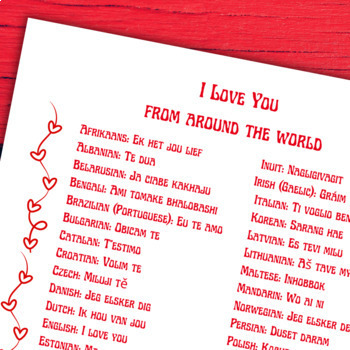 I Love You
from around the world
Afrikaans: Ek het jou lief
Albanian: Te dua
Belarusian: Ja ciabe kakhaju
Bengali: Ami tomake bhalobashi
Brazilian (Portuguese): Eu te amo
Bulgarian: Obicam te
Catalan: T'estimo
Croatian: Volim te
Czech: Miluji tě
Danish: Jeg elsker dig
Dutch: Ik hou van jou
English: I love you
Estonian:
Inuit: Nagligivagit
Irish (Gaelic): Gráim
Italian: Ti voglio ben
Korean: Sarang hae
Latvian: Es tevi milu
Lithuanian: Aš tave my
Maltese: Inhobbok
Mandarin: Wo ai ni
Norwegian: Jeg elsker de
Persian: Duset daram
Polish: